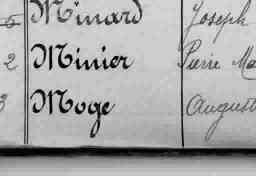 Minard Joseph
2 Minier Pierre Ma
3 Moge August